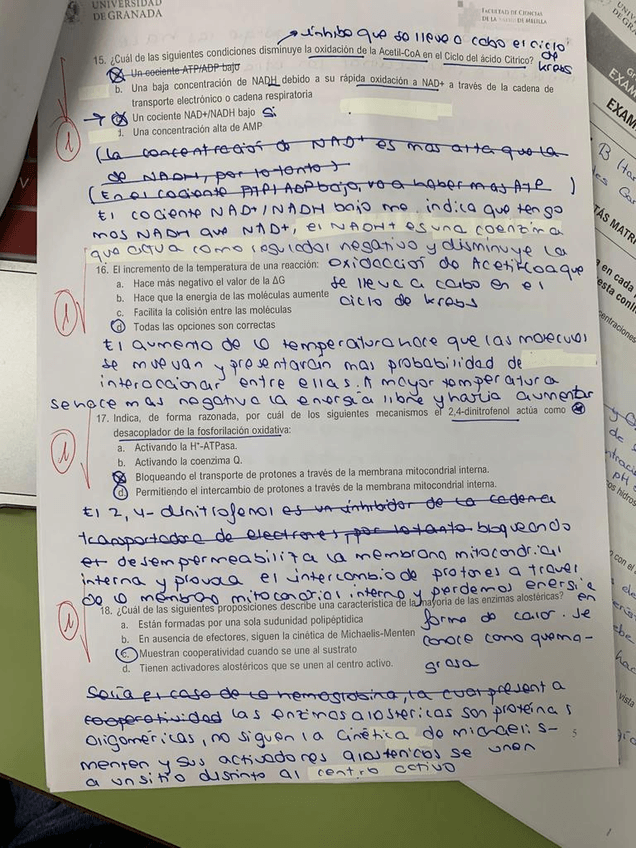 UNIVERSIDAD
DE GRANADA
FACULTAD DE CIENCIAS
DE LA DE MELILLA
inhibo que se lleve a cabo el ciclo
de
krebs
15. ¿Cuál de las siguientes condiciones disminuye la oxidación de la Acetil-CoA en el Ciclo del ácido Cítrico?
Un cociente ATP/ADP bajo
b. Una baja concentración de NADH debido a su rápida oxidación a NAD+ a través de la cadena de
transporte electrónico o cadena respiratoria
Un cociente NAD+/NADH bajo si
Una concentración alta de AMP
1
(La concentración de NAD+ es mas alta que la
de NADH, por lo tanto)
(En el cociente ATP/ADP bajo, va a haber mas ATP )
El cociente NAD+/NADH bajo me indica que tengo
mas NADH que NAD+, el NADH+ es una coenzima
que actua como regulador negativo y disminuye la
oxidaccion de Acetilcoa que
se lleva a cabo en el
ciclo de krebs
16. El incremento de la temperatura de una reacción:
a. Hace más negativo el valor de la ΔG
b. Hace que la energía de las moléculas aumente
c. Facilita la colisión entre las moléculas
d Todas las opciones son correctas
1
El aumento de la temperatura hace que las moleculas
se muevan y presentaran mas probabilidad de
interaccionar entre ellas. A mayor temperatura
se hace mas negativa la energia libre y haria aumentar
17. Indica, de forma razonada, por cuál de los siguientes mecanismos el 2,4-dinitrofenol actúa como
desacoplador de la fosforilación oxidativa:
a. Activando la H+-ATPasa.
b. Activando la coenzima Q.
Bloqueando el transporte de protones a través de la membrana mitocondrial interna.
d Permitiendo el intercambio de protones a través de la membrana mitocondrial interna.
1
El 2,4-dinitrofenol es un inhibidor de la cadena
transportadora de electrones, por lo tanto bloqueando
el desempermeabiliza la membrana mitocondrial
interna y provoca el intercambio de protones a traves
de la membrana mitocondrial interna y perdemos energia
en
forma de calor. Se
conoce como quema-
grasa
18. ¿Cuál de las siguientes proposiciones describe una característica de la mayoría de las enzimas alostéricas?
a. Están formadas por una sola sudunidad polipéptidica
b. En ausencia de efectores, siguen la cinética de Michaelis-Menten
c. Muestran cooperatividad cuando se une al sustrato
d. Tienen activadores alostéricos que se unen al centro activo.
1
Seria el caso de la hemoglobina, la cual presenta
cooperatividad las enzimas alostericas son proteinas
oligoméricas, no siguen la cinética de michaelis-
menten y sus activadores alostericos se unen
a un sitio distinto al centro activo
5
EXAM
EXAM